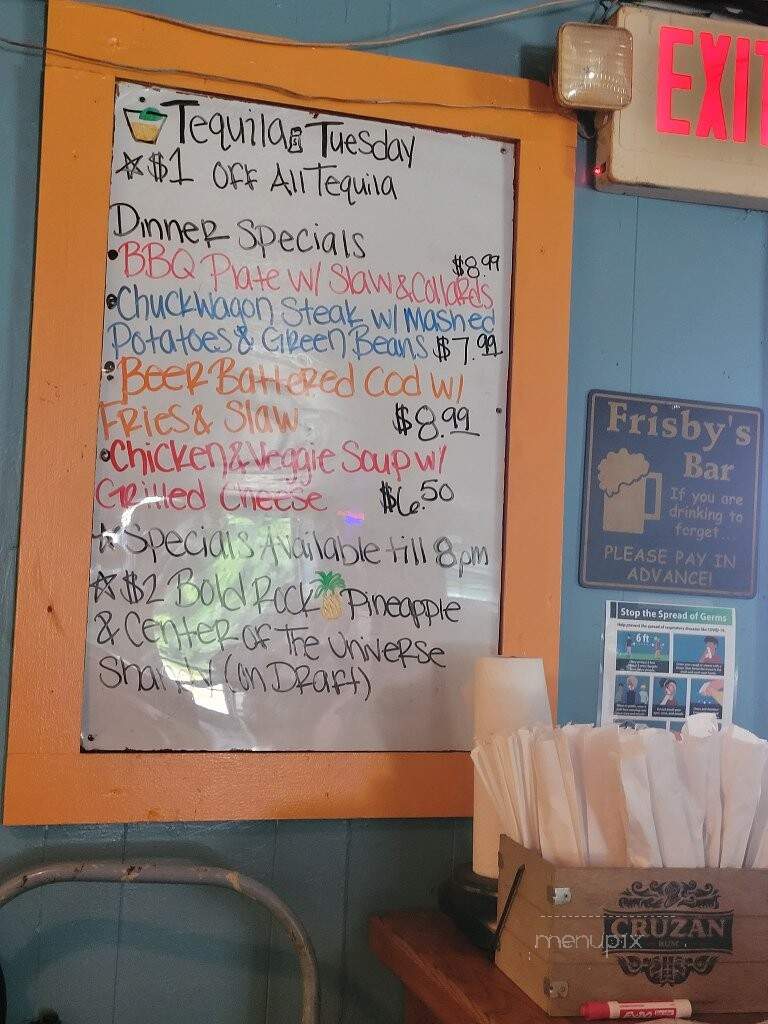 Tequila Tuesday
$1 Off All Tequila
Dinner Specials
BBQ Plate w/ Slaw & Collards $8.99
Chuckwagon Steak w/ Mashed
Potatoes & Green Beans $7.99
Beer Battered Cod w/
Fries & Slaw $8.99
Chicken & Veggie Soup w/
Grilled Cheese $6.50
Specials Available till 8pm
$2 Bold Rock Pineapple
& Center of The Universe
Shandy (on Draft)
EXIT
Frisby's
Bar
If you are
drinking to
forget...
PLEASE PAY IN
ADVANCE!
Stop the Spread of Germs
Help prevent the spread of respiratory diseases like COVID-19.
6 ft
CRUZAN
RUM
menupix